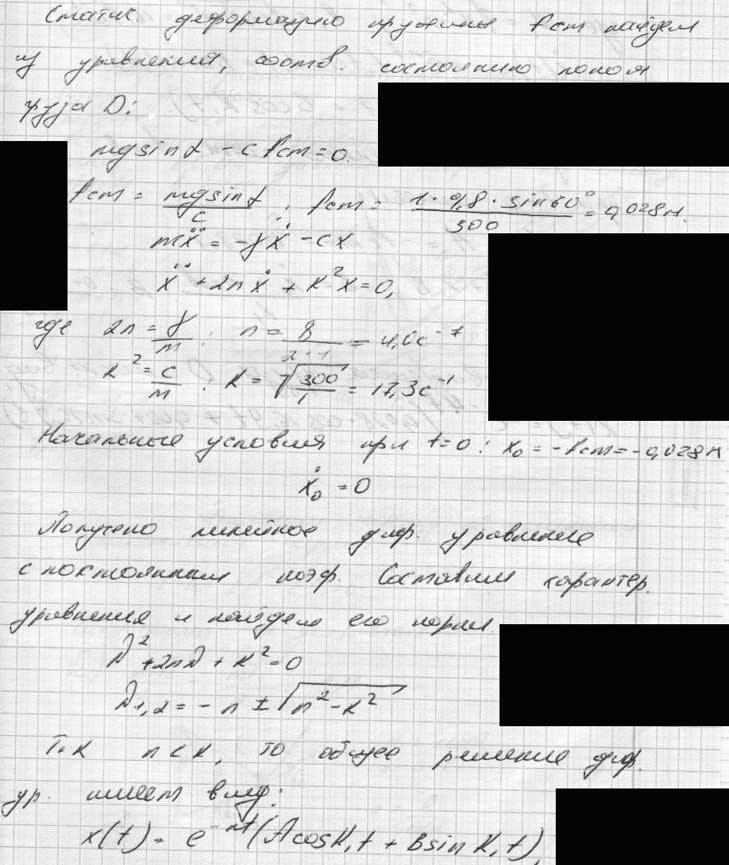 Статич. деформацию пружины fст найдем
из уравнения, соотв. состоянию покоя
груза D:
mg sin α - c fст = 0.
fст = mg sin α / c ; fст = 1 · 9,8 · sin 60° / 300 = 0,028 м.
mẍ = -γẋ - cx
ẍ + 2nẋ + k²x = 0,
где 2n = γ/m ; n = 8 / 2·1 = 4,0 c⁻¹
k² = c/m ; k = √300/1 = 17,3 c⁻¹
Начальные условия при t=0 : x₀ = -fст = -0,028 м
ẋ₀ = 0
Получено линейное диф. уравнение
с постоянным коэф. Составим характер.
уравнения и найдем его корни.
λ² + 2nλ + k² = 0
λ₁,₂ = - n ± √n² - k²
Т.к n < k, то общее решение диф.
ур. имеет вид:
x(t) = e⁻ⁿᵗ (A cos k₁t + B sin k₁t),